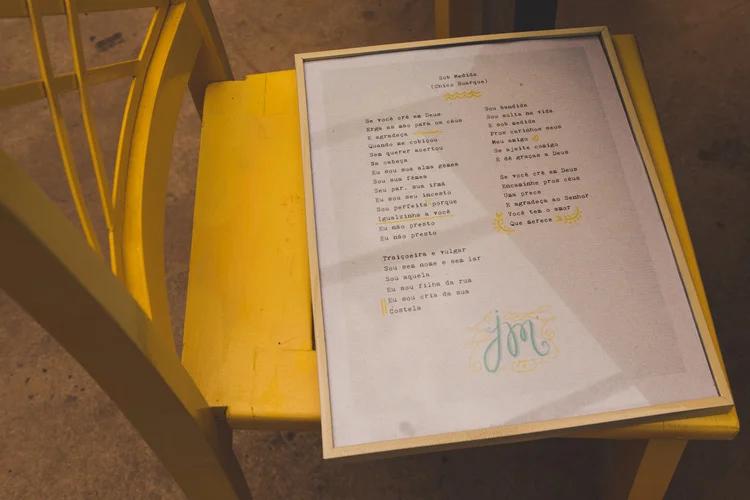 Sob Medida
(Chico Buarque)
Se você crê em Deus
Erga as mão para os céus
E agradeça
Quando me cobiçou
Sem querer acertou
Na cabeça
Eu sou sua alma gêmea
Sou sua fêmea
Seu par, sua irmã
Eu sou seu incesto
Sou perfeita porque
Igualzinha a você
Eu não presto
Eu não presto
Traiçoeira e vulgar
Sou sem nome e sem lar
Sou aquela
Eu sou filha da rua
Eu sou cria da sua
Costela
Sou bandida
Sou solta na vida
E sob medida
Pros carinhos seus
Meu amigo
Se ajeite comigo
E dê graças a Deus
Se você crê em Deus
Encaminhe pros céus
Uma prece
E agradeça ao Senhor
Você tem o amor
Que merece
jm